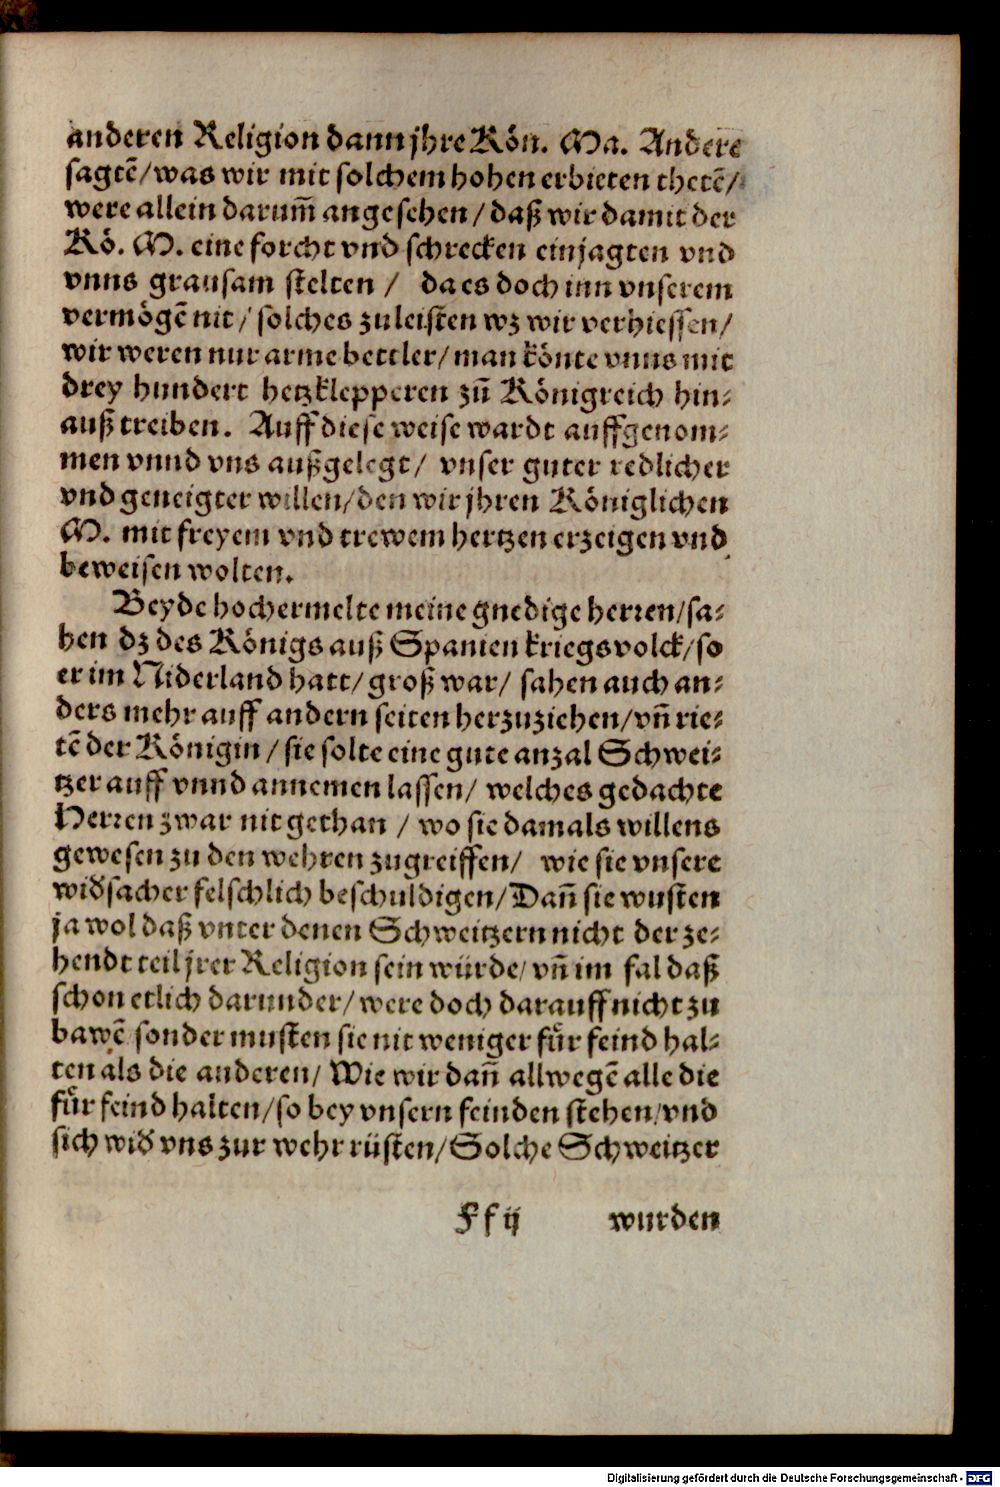 anderen Religion dann jhre Kön. Ma. Andere
sagtē/was wir mit solchem hohen erbieten thetē/
were allein darum̄ angesehen/daß wir damit der
Kö. M. eine forcht vnd schrecken einjagten vnd
vnns grausam stelten / da es doch inn vnserem
vermögē nit/ solches zuleisten wz wir verhiessen/
wir weren nur arme bettler/man könte vnns mit
drey hundert hetzklepperen zū Königreich hin-
auß treiben. Auff diese weise wardt auffgenom-
men vnnd vns außgelegt/ vnser guter redlicher
vnd geneigter willen/den wir jhren Königlichen
M. mit freyem vnd trewem hertzen erzeigen vnd
beweisen wolten.
Beyde hochermelte meine gnedige herren/sa-
hen dz des Königs auß Spanien kriegsvolck/so
er im Niderland hatt/groß war/ sahen auch an-
ders mehr auff andern seiten herzuziehen/vn̄ rie-
tē der Königin/sie solte eine gute anzal Schwei-
tzer auff vnnd annemen lassen/ welches gedachte
Herren zwar nit gethan / wo sie damals willens
gewesen zu den wehren zugreiffen/ wie sie vnsere
wid̄sacher felschlich beschuldigen/Dan̄ sie wusten
ja wol daß vnter denen Schweitzern nicht der ze-
hendt teil jrer Religion sein würde/vn̄ im fal daß
schon etlich darunder/were doch darauff nicht zu
bawē sonder musten sie nit weniger fůr feind hal-
ten als die anderen/ Wie wir dan̄ allwegē alle die
fůr feind halten/so bey vnsern feinden stehen/vnd
sich wid̄ vns zur wehr rüsten/Solche Schweitzer
Ff ij wurden
Digitalisierung gefördert durch die Deutsche Forschungsgemeinschaft - DFG